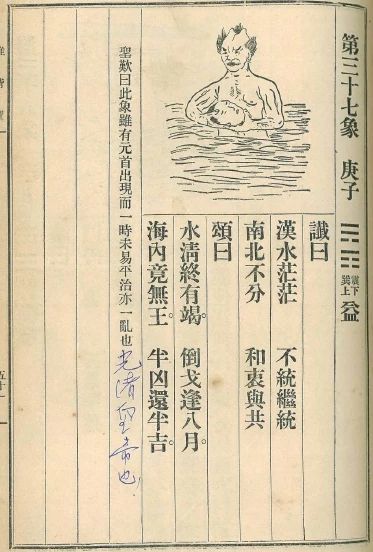 第三十七象 庚子 震下 巽上 益
讖曰
漢水茫茫 不統繼統
南北不分 和衷與共
頌曰
水清終有竭。 倒戈逢八月。
海內竟無王。 半凶還半吉。
聖歎曰此象雖有元首出現而一時未易平治亦一亂也